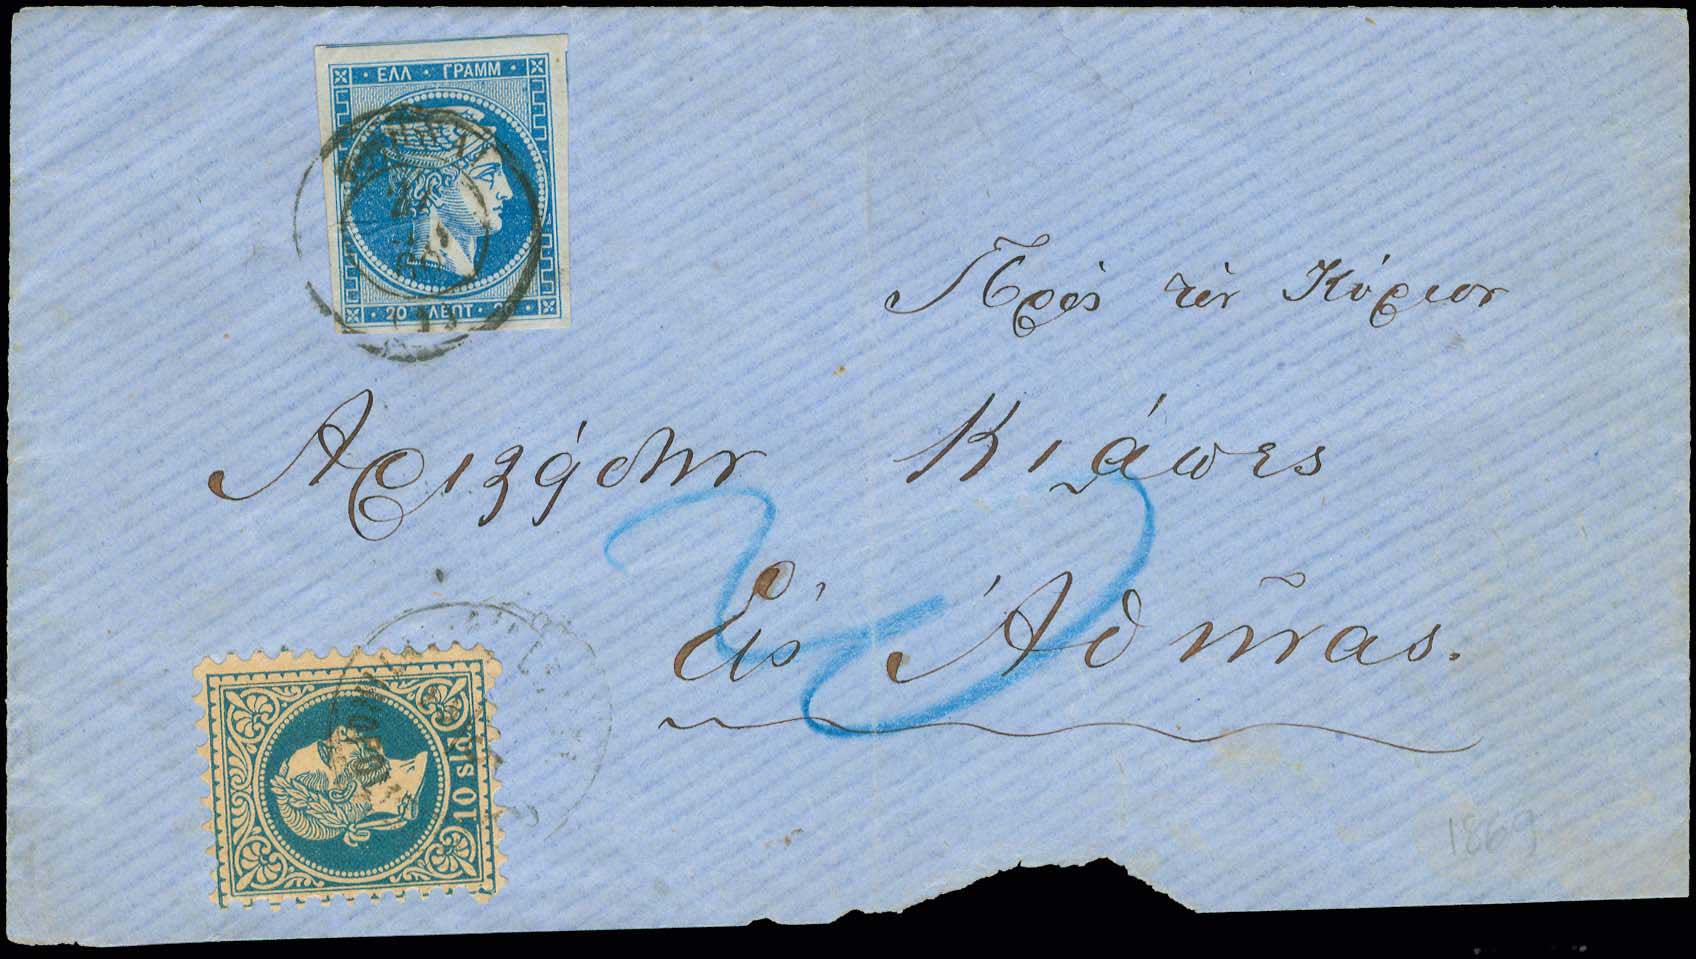 ΕΛΛ · ΓΡΑΜΜ
20 ΛΕΠΤ · 20
Πρὸς τὸν Κύριον
Ἀριϛείδην Κιάπες
Εἰς Ἀθήνας.
10 sld.
1869